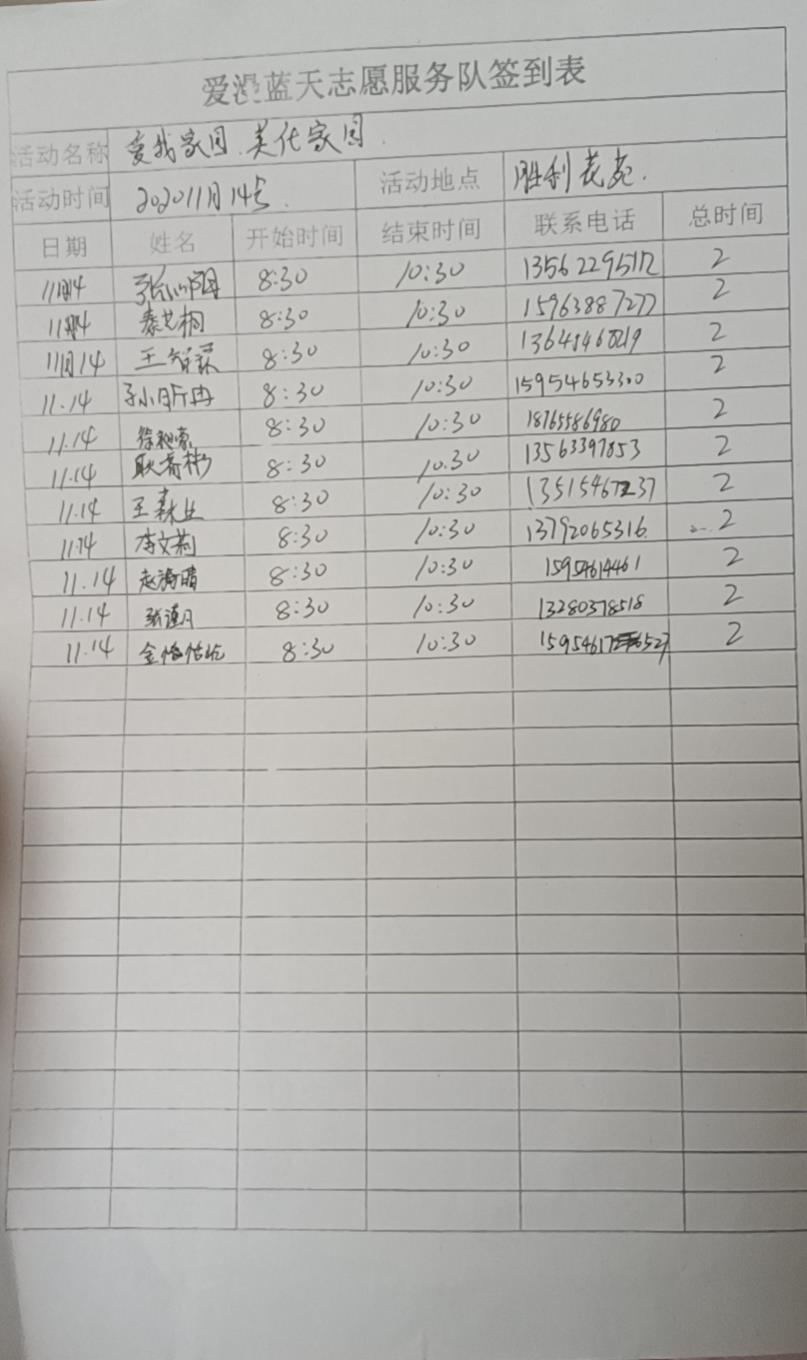 爱 蓝天志愿服务队签到表
活动名称 爱我家园.美化家园.
活动时间 202011月14号. 活动地点 胜利花苑.
日期 姓名 开始时间 结束时间 联系电话 总时间
11月14 8:30 10:30 2
11月14 秦艺桐 8:30 10:30 15963887277 2
11月14 王智霖 8:30 10:30 2
11.14 8:30 10:30 15954653300 2
11.14 8:30 10:30 18765586980 2
11.14 8:30 10.30 13563397853 2
11.14 王 8:30 10:30 2
11.14 李文莉 8:30 10:30 13792065316. 2
11.14 赵 晴 8:30 10:30 15954614461 2
11.14 张谨月 8:30 10:30 13280378518 2
11.14 金 8:30 10:30 2